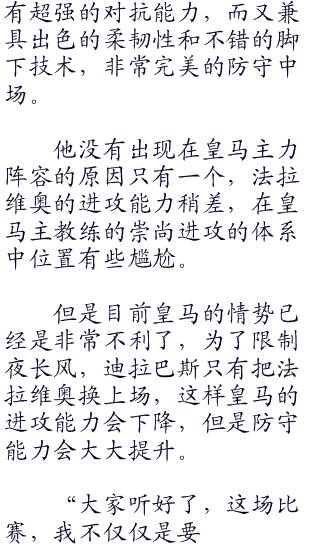 有超强的对抗能力，而又兼
具出色的柔韧性和不错的脚
下技术，非常完美的防守中
场。
他没有出现在皇马主力
阵容的原因只有一个，法拉
维奥的进攻能力稍差，在皇
马主教练的崇尚进攻的体系
中位置有些尴尬。
但是目前皇马的情势已
经是非常不利了，为了限制
夜长风，迪拉巴斯只有把法
拉维奥换上场，这样皇马的
进攻能力会下降，但是防守
能力会大大提升。
“大家听好了，这场比
赛，我不仅仅是要